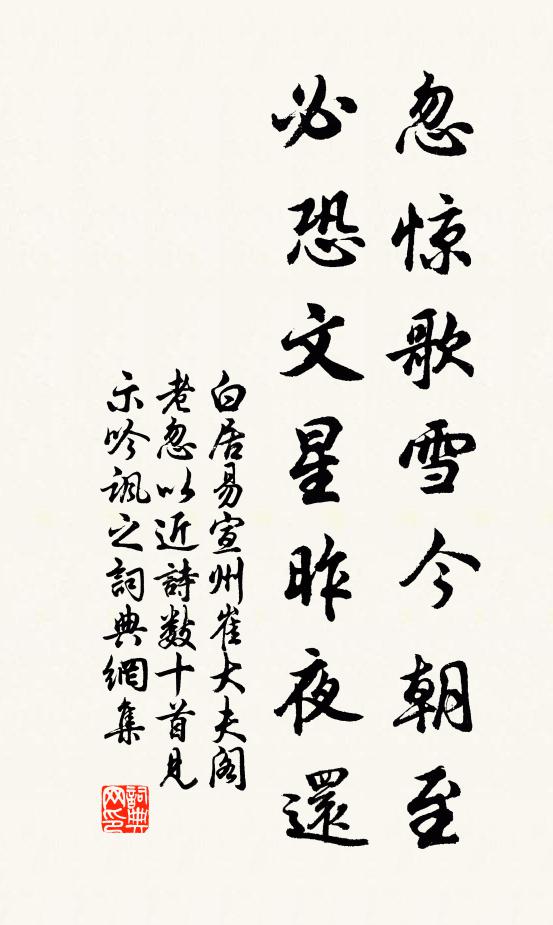 忽惊歌雪今朝至
必恐文星昨夜還
白居易宣州崔大夫阁
老忽以近詩数十首見
示吟諷之詞典網集
詞典网印